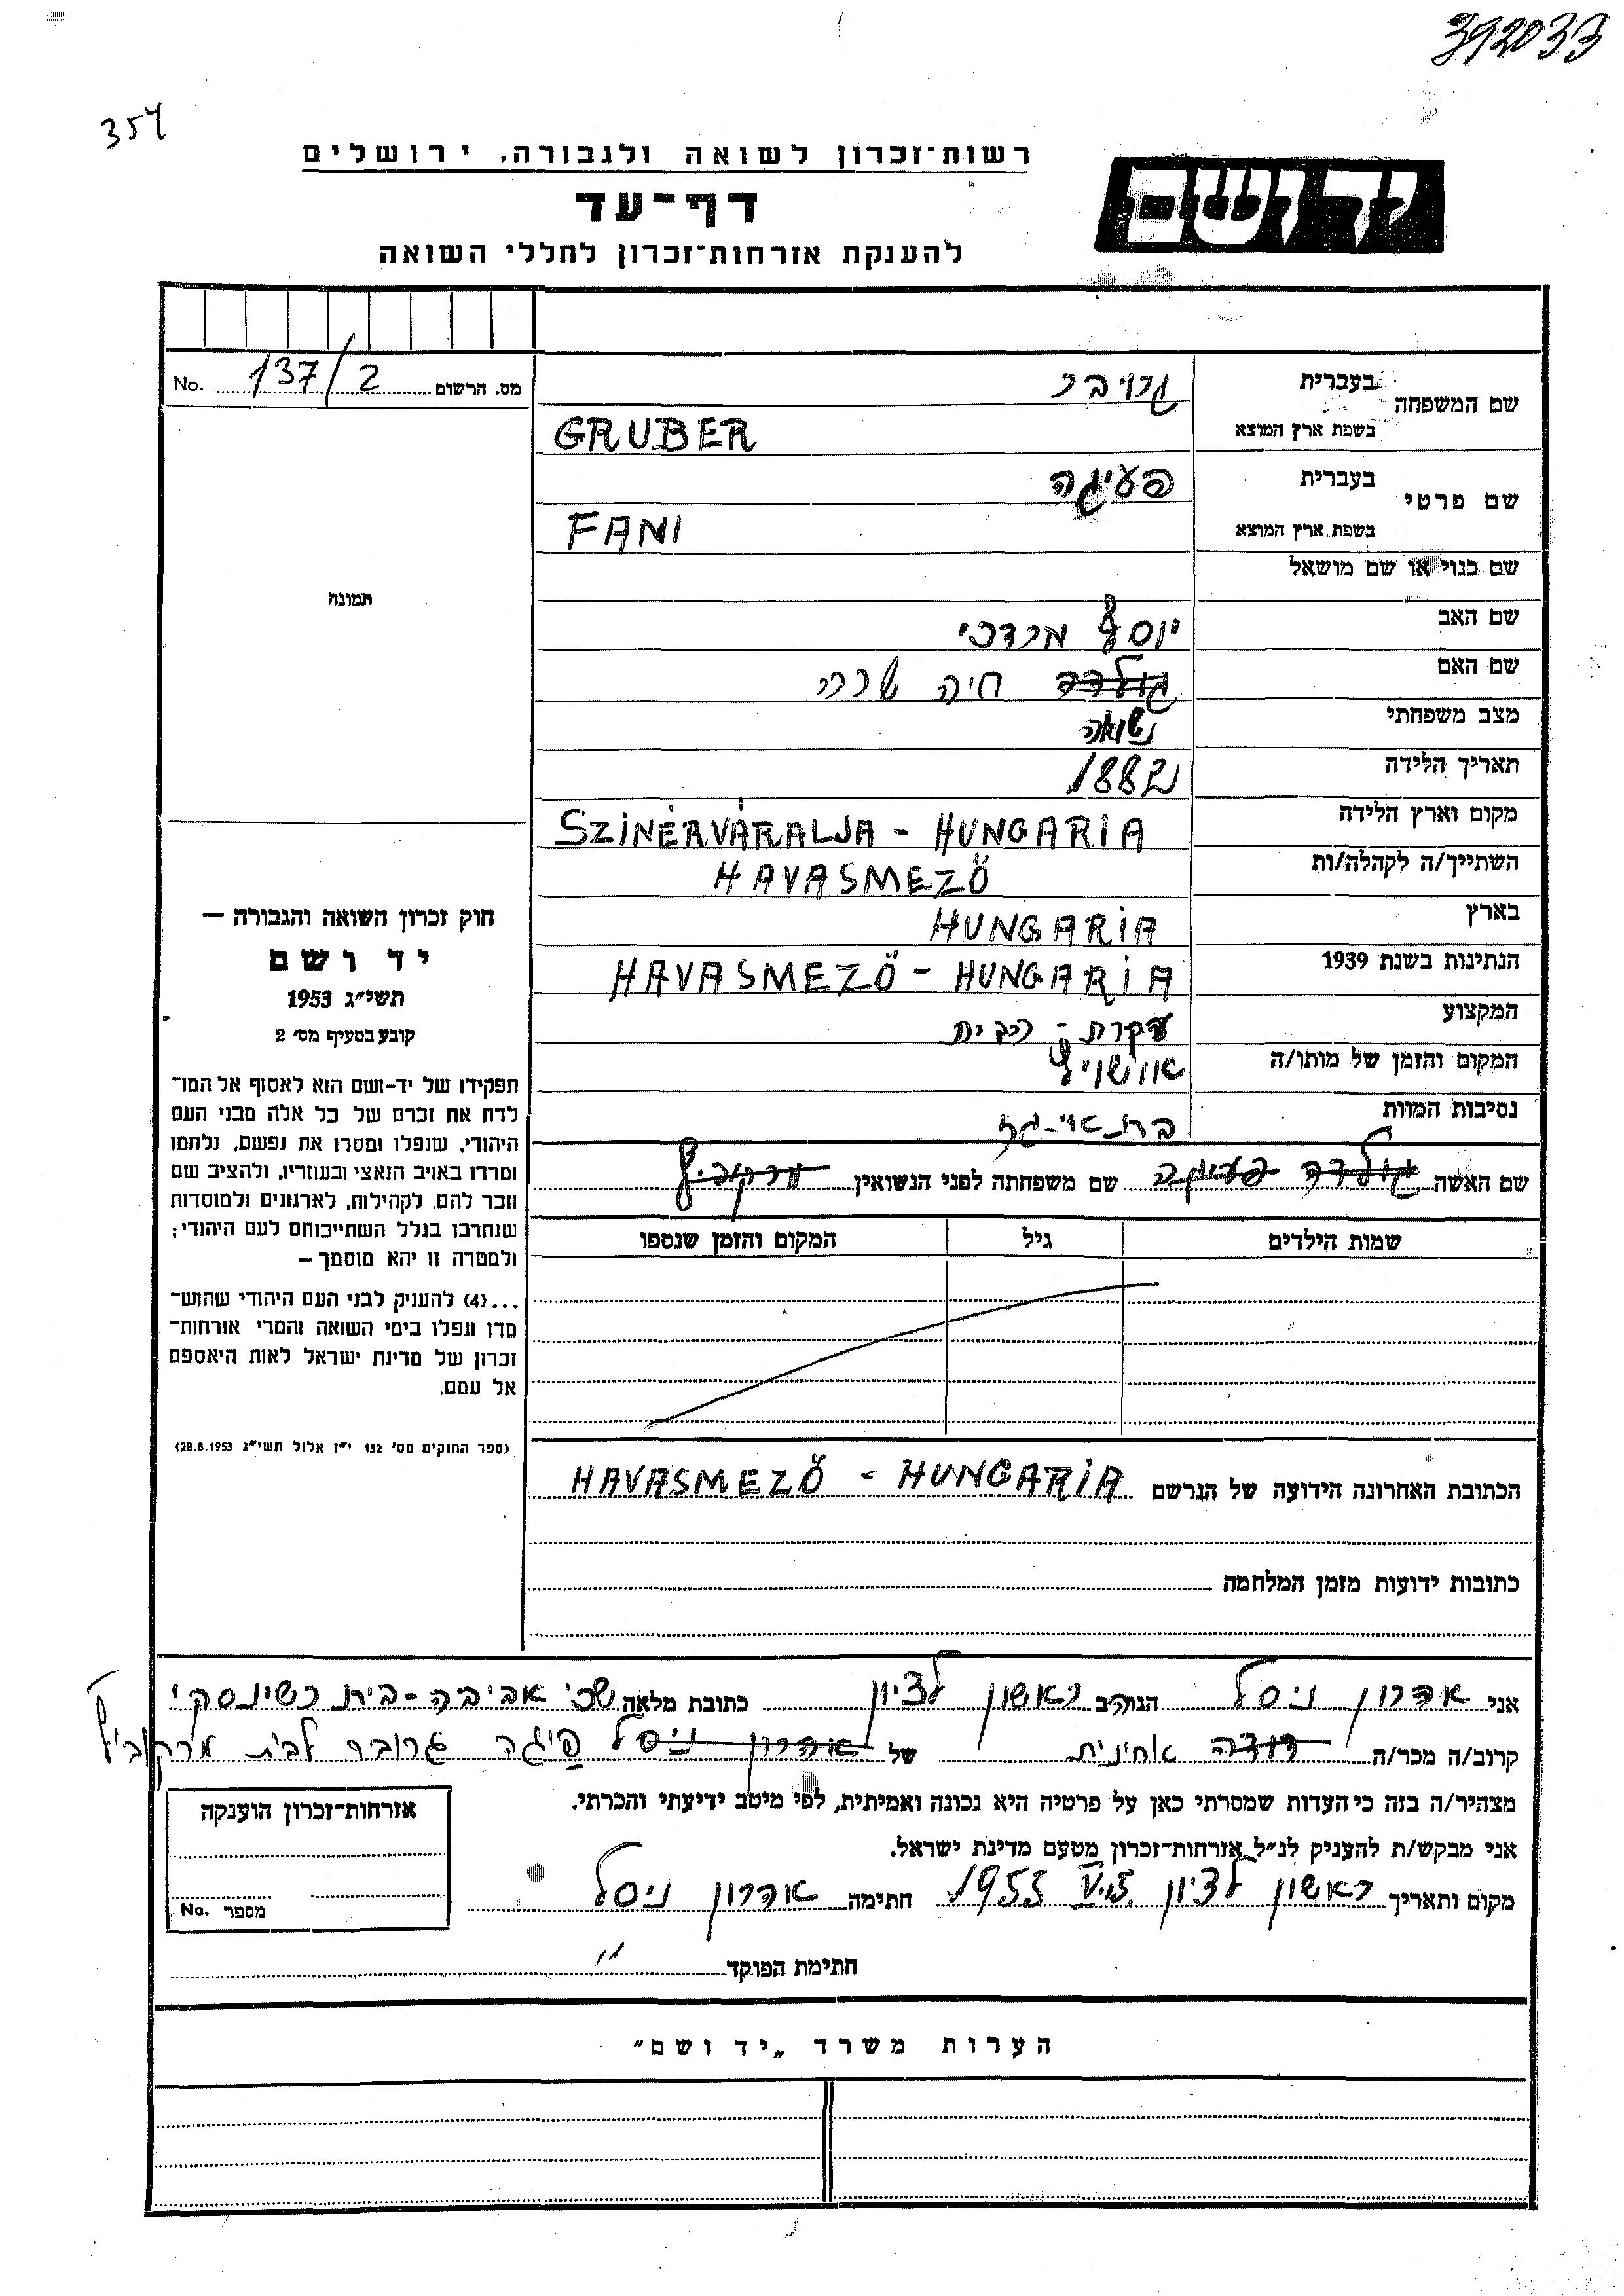 392033
354
רשות־זכרון לשואה ולגבורה, ירושלים
יד ושם
דף־עד
להענקת אזרחות־זכרון לחללי השואה
No. 137/2 מס. הרשום
שם המשפחה בעברית גרובר
בשפת ארץ המוצא GRUBER
שם פרטי בעברית פעיגה
בשפת ארץ המוצא FANI
שם כנוי או שם מושאל
תמונה
שם האב יוסף מרדכי
שם האם גולדה חיה שרה
מצב משפחתי נשואה
תאריך הלידה 1882
מקום וארץ הלידה SZINÉRVÁRALJA - HUNGARIA
השתייך/ה לקהלה/ות HAVASMEZŐ
בארץ HUNGARIA
הנתינות בשנת 1939 HAVASMEZŐ - HUNGARIA
המקצוע עקרת - הבית
המקום והזמן של מותו/ה אוושויץ
נסיבות המוות
שם האשה גולדה פעיגה שם משפחתה לפני הנשואין מרקוביץ
שמות הילדים גיל המקום והזמן שנספו
חוק זכרון השואה והגבורה —
יד ושם
תשי״ג 1953
קובע בסעיף מס׳ 2
תפקידו של יד-ושם הוא לאסוף אל המו־
לדת את זכרם של כל אלה מבני העם
היהודי, שנפלו ומסרו את נפשם, נלחמו
ומרדו באויב הנאצי ובעוזריו, ולהציב שם
וזכר להם, לקהילות, לארגונים ולמוסדות
שנחרבו בגלל השתייכותם לעם היהודי;
ולמטרה זו יהא מוסמך —
...(4) להעניק לבני העם היהודי שהוש־
מדו ונפלו בימי השואה והמרי אזרחות־
זכרון של מדינת ישראל לאות היאספם
אל עמם.
(ספר החוקים מס׳ 132 י״ז אלול תשי״ג 28.8.1953)
הכתובת האחרונה הידועה של הנרשם HAVASMEZŐ - HUNGARIA
כתובות ידועות מזמן המלחמה
אני אהרון ניסל הגר/ה ב ראשון לציון כתובת מלאה שכ׳ אביבה - בית רשינסקי
קרוב/ה מכר/ה דודה אחינית של אהרון ניסל פיגה גרובר לבית מרקוביץ
מצהיר/ה בזה כי העדות שמסרתי כאן על פרטיה היא נכונה ואמיתית, לפי מיטב ידיעתי והכרתי.
אני מבקש/ת להעניק לנ״ל אזרחות־זכרון מטעם מדינת ישראל.
מקום ותאריך ראשון לציון 15.V.1955 חתימה אהרון ניסל
אזרחות־זכרון הוענקה
No. מספר
חתימת הפוקד
הערות משרד „יד ושם״